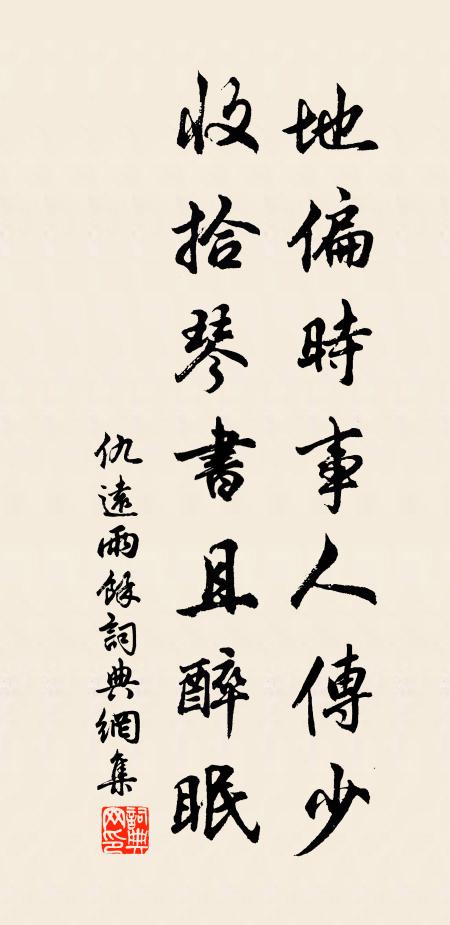 地偏時事人傳少
收拾琴書且醉眠
仇遠雨餘詞典網集
詞典网印